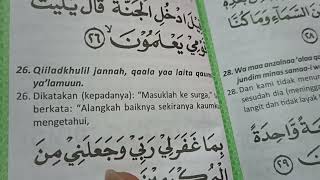 قِيلَ ادْخُلِ الْجَنَّةَ قَالَ يٰلَيْتَ
قَوْمِي يَعْلَمُوْنَ ۙ ٢٦
26. Qiiladkhulil jannah, qaala yaa laita qaum
ya'lamuun.
26. Dikatakan (kepadanya): "Masuklah ke surga,"
berkata: "Alangkah baiknya sekiranya kaumku
mengetahui,
بِمَا غَفَرَ لِيْ رَبِّيْ وَجَعَلَنِيْ مِنَ
السَّمَاءِ وَمَا كُنَّا
٢٨
28. Wa maa anzalnaa 'alaa qa
jundim minas samaa-i w
28. Dan kami tidak menurun
sesudah dia (meningga
langit dan tidak layak
وَاحِدَةً
٢٩